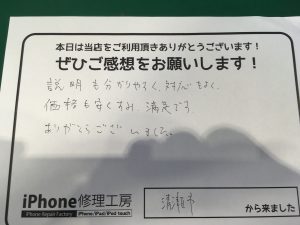 本日は当店をご利用頂きありがとうございます!
ぜひご感想をお願いします!
説明も分かりやすく、対応もよく、
価格も安くすみ、満足です。
ありがとうございました。
iPhone修理工房
iPhone Repair Factory iPhone/iPad/iPod touch
清瀬市 から来ました